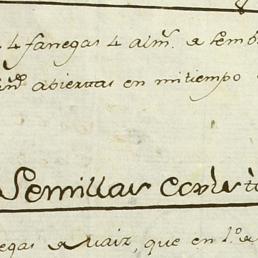 4 fanegas 4 alm.^s de semb
abiertas en mi tiempo
Semillas
egas de Maiz, que en 1.º de